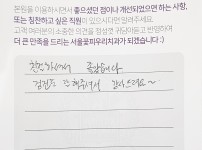 본원을 이용하시면서 좋으셨던 점이나 개선되었으면 하는 사항,
또는 칭찬하고 싶은 직원이 있으시다면 알려주세요.
고객 여러분의 소중한 의견을 정성껏 귀담아듣고 반영하여
더 큰 만족을 드리는 서울꽃피우리치과가 되겠습니다 :)
친절하셔서 좋았습니다
검진도 잘 해주셔서 감사드려요~